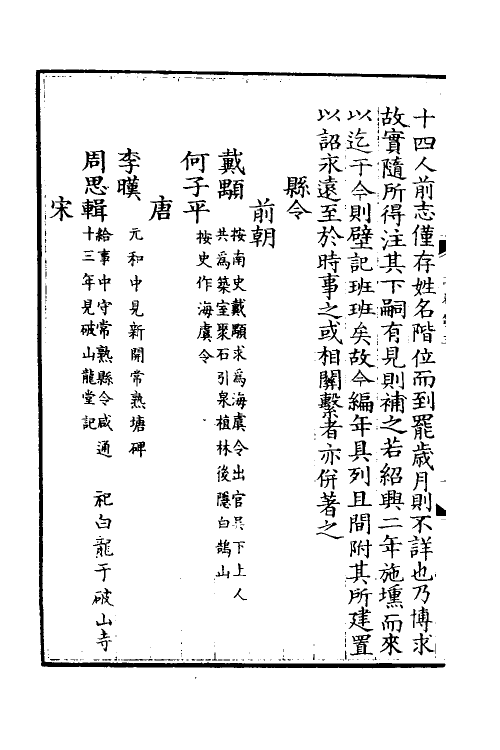 十四人前志僅存姓名階位而到罷歲月則不詳也乃博求
故實隨所得注其下嗣有見則補之若紹興二年施壎而來
以迄于今則壁記班班矣故今編年具列且間附其所建置
以詔永遠至於時事之或相關繫者亦併著之
縣令
前朝
戴顒
按南史戴顒求為海虞令出官吳下上人
共為築室聚石引泉植林後隱白鵠山
何子平
按史作海虞令
唐
李暵
元和中見新開常熟塘碑
周思輯
給事中守常熟縣令咸通
十三年見破山龍堂記
祀白龍于破山寺
宋